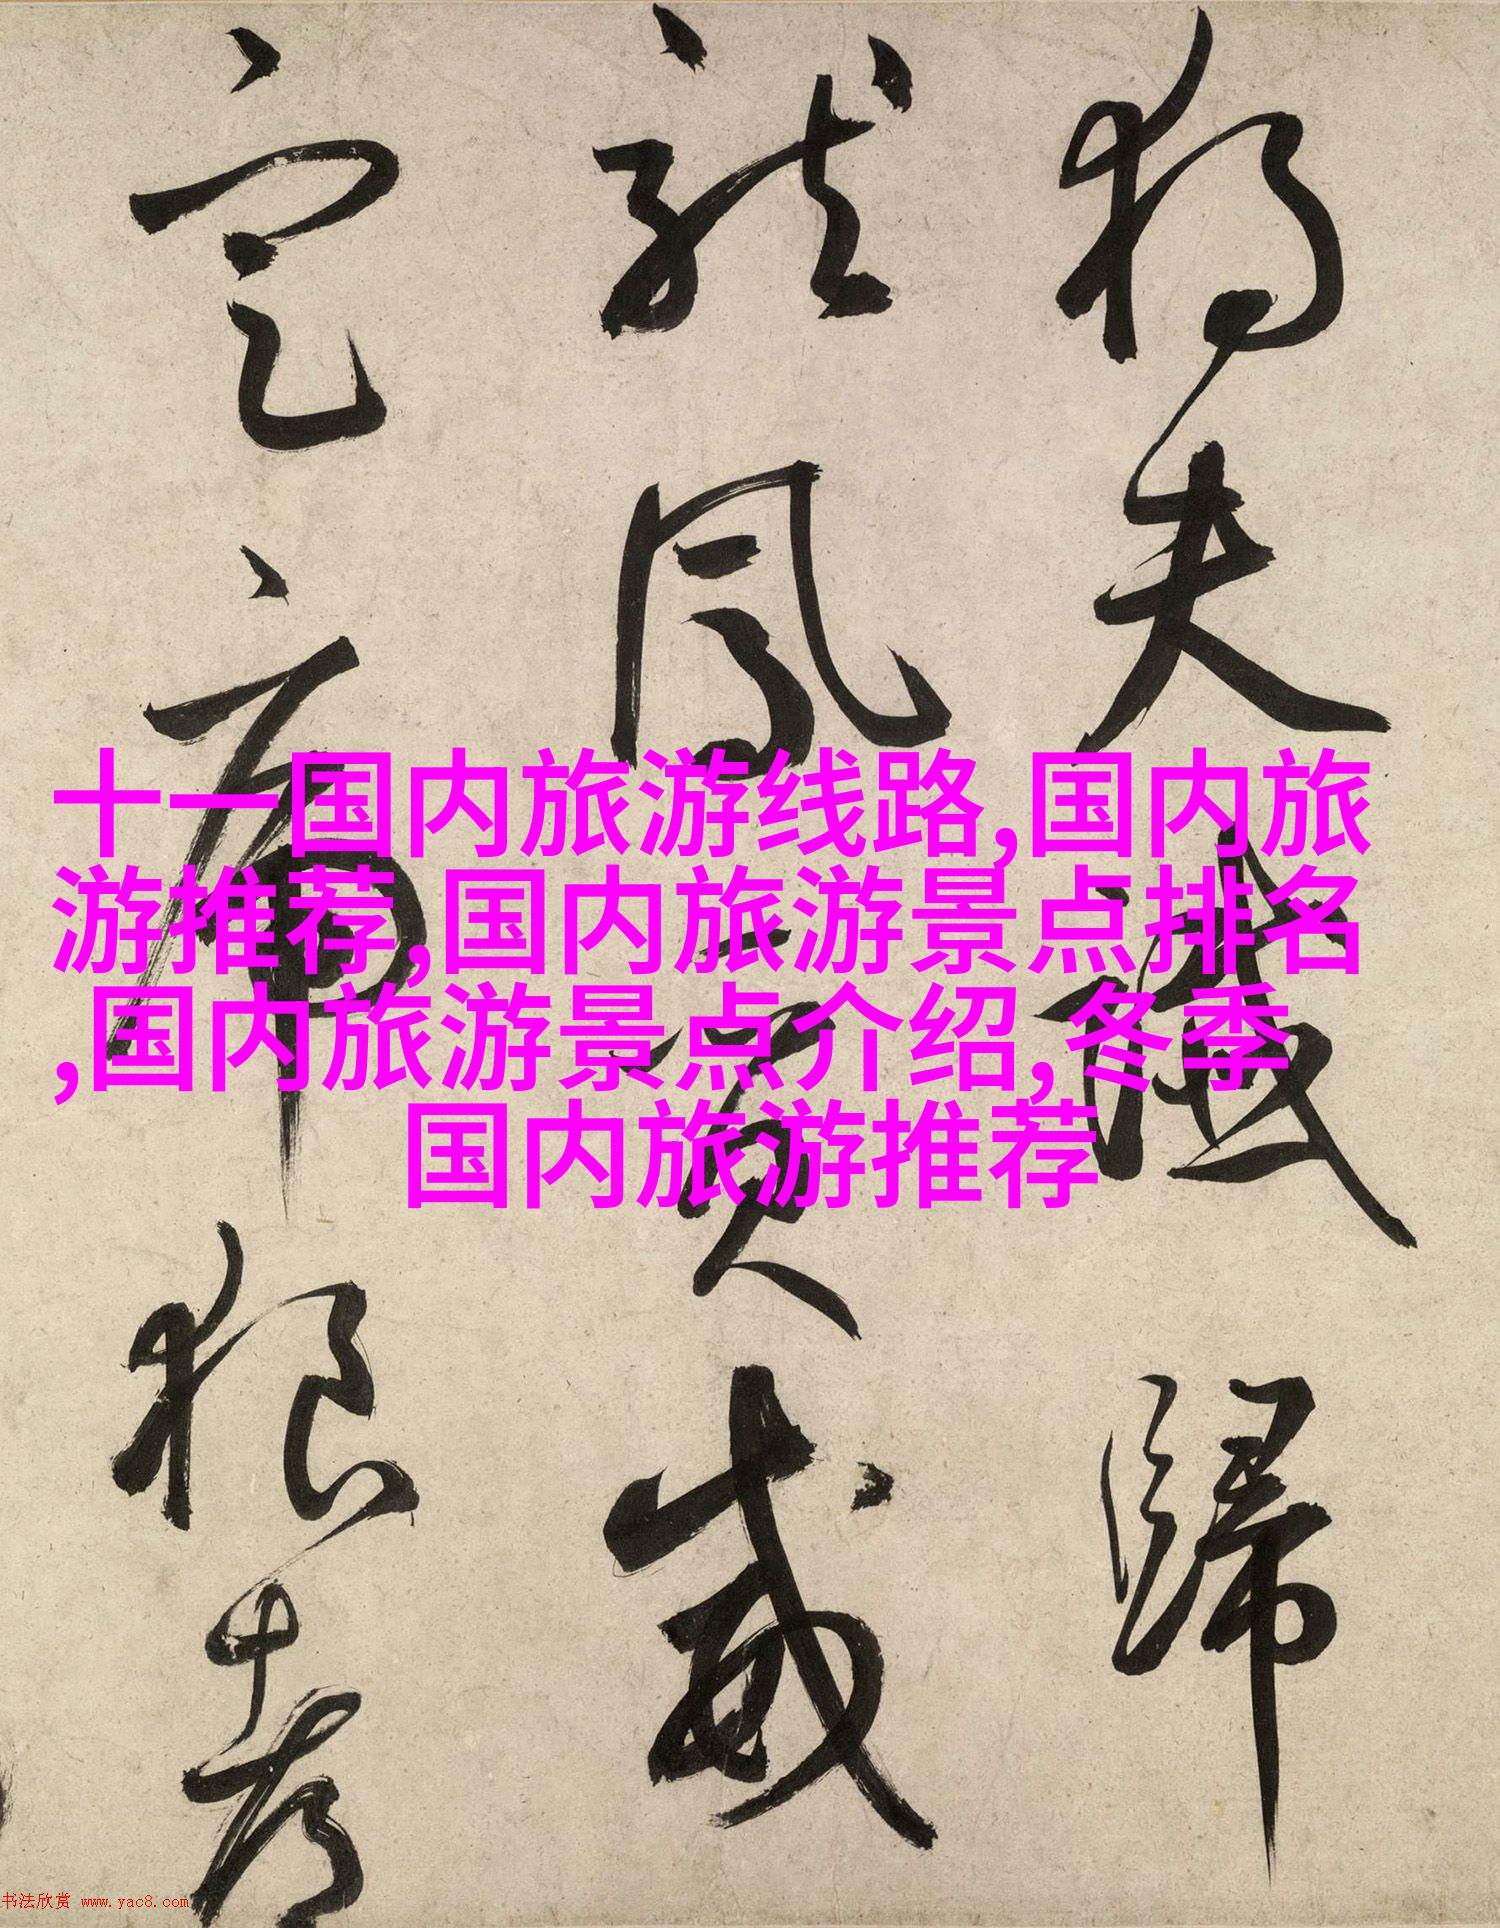 獨夫讖歸
龍鳳質威
定虎狼都
十一国内旅游线路,国内旅
游推荐,国内旅游景点排名
,国内旅游景点介绍,冬季
国内旅游推荐
书法欣赏 www.yac8.com